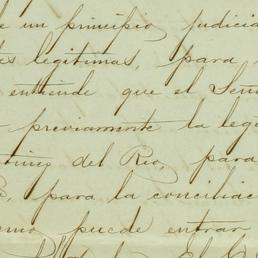 e un principio judicia
es legitimas, para
entiende que el Señ
previamente la leg
tines del Rio, para
para la conciliac
smo puede entrar
El